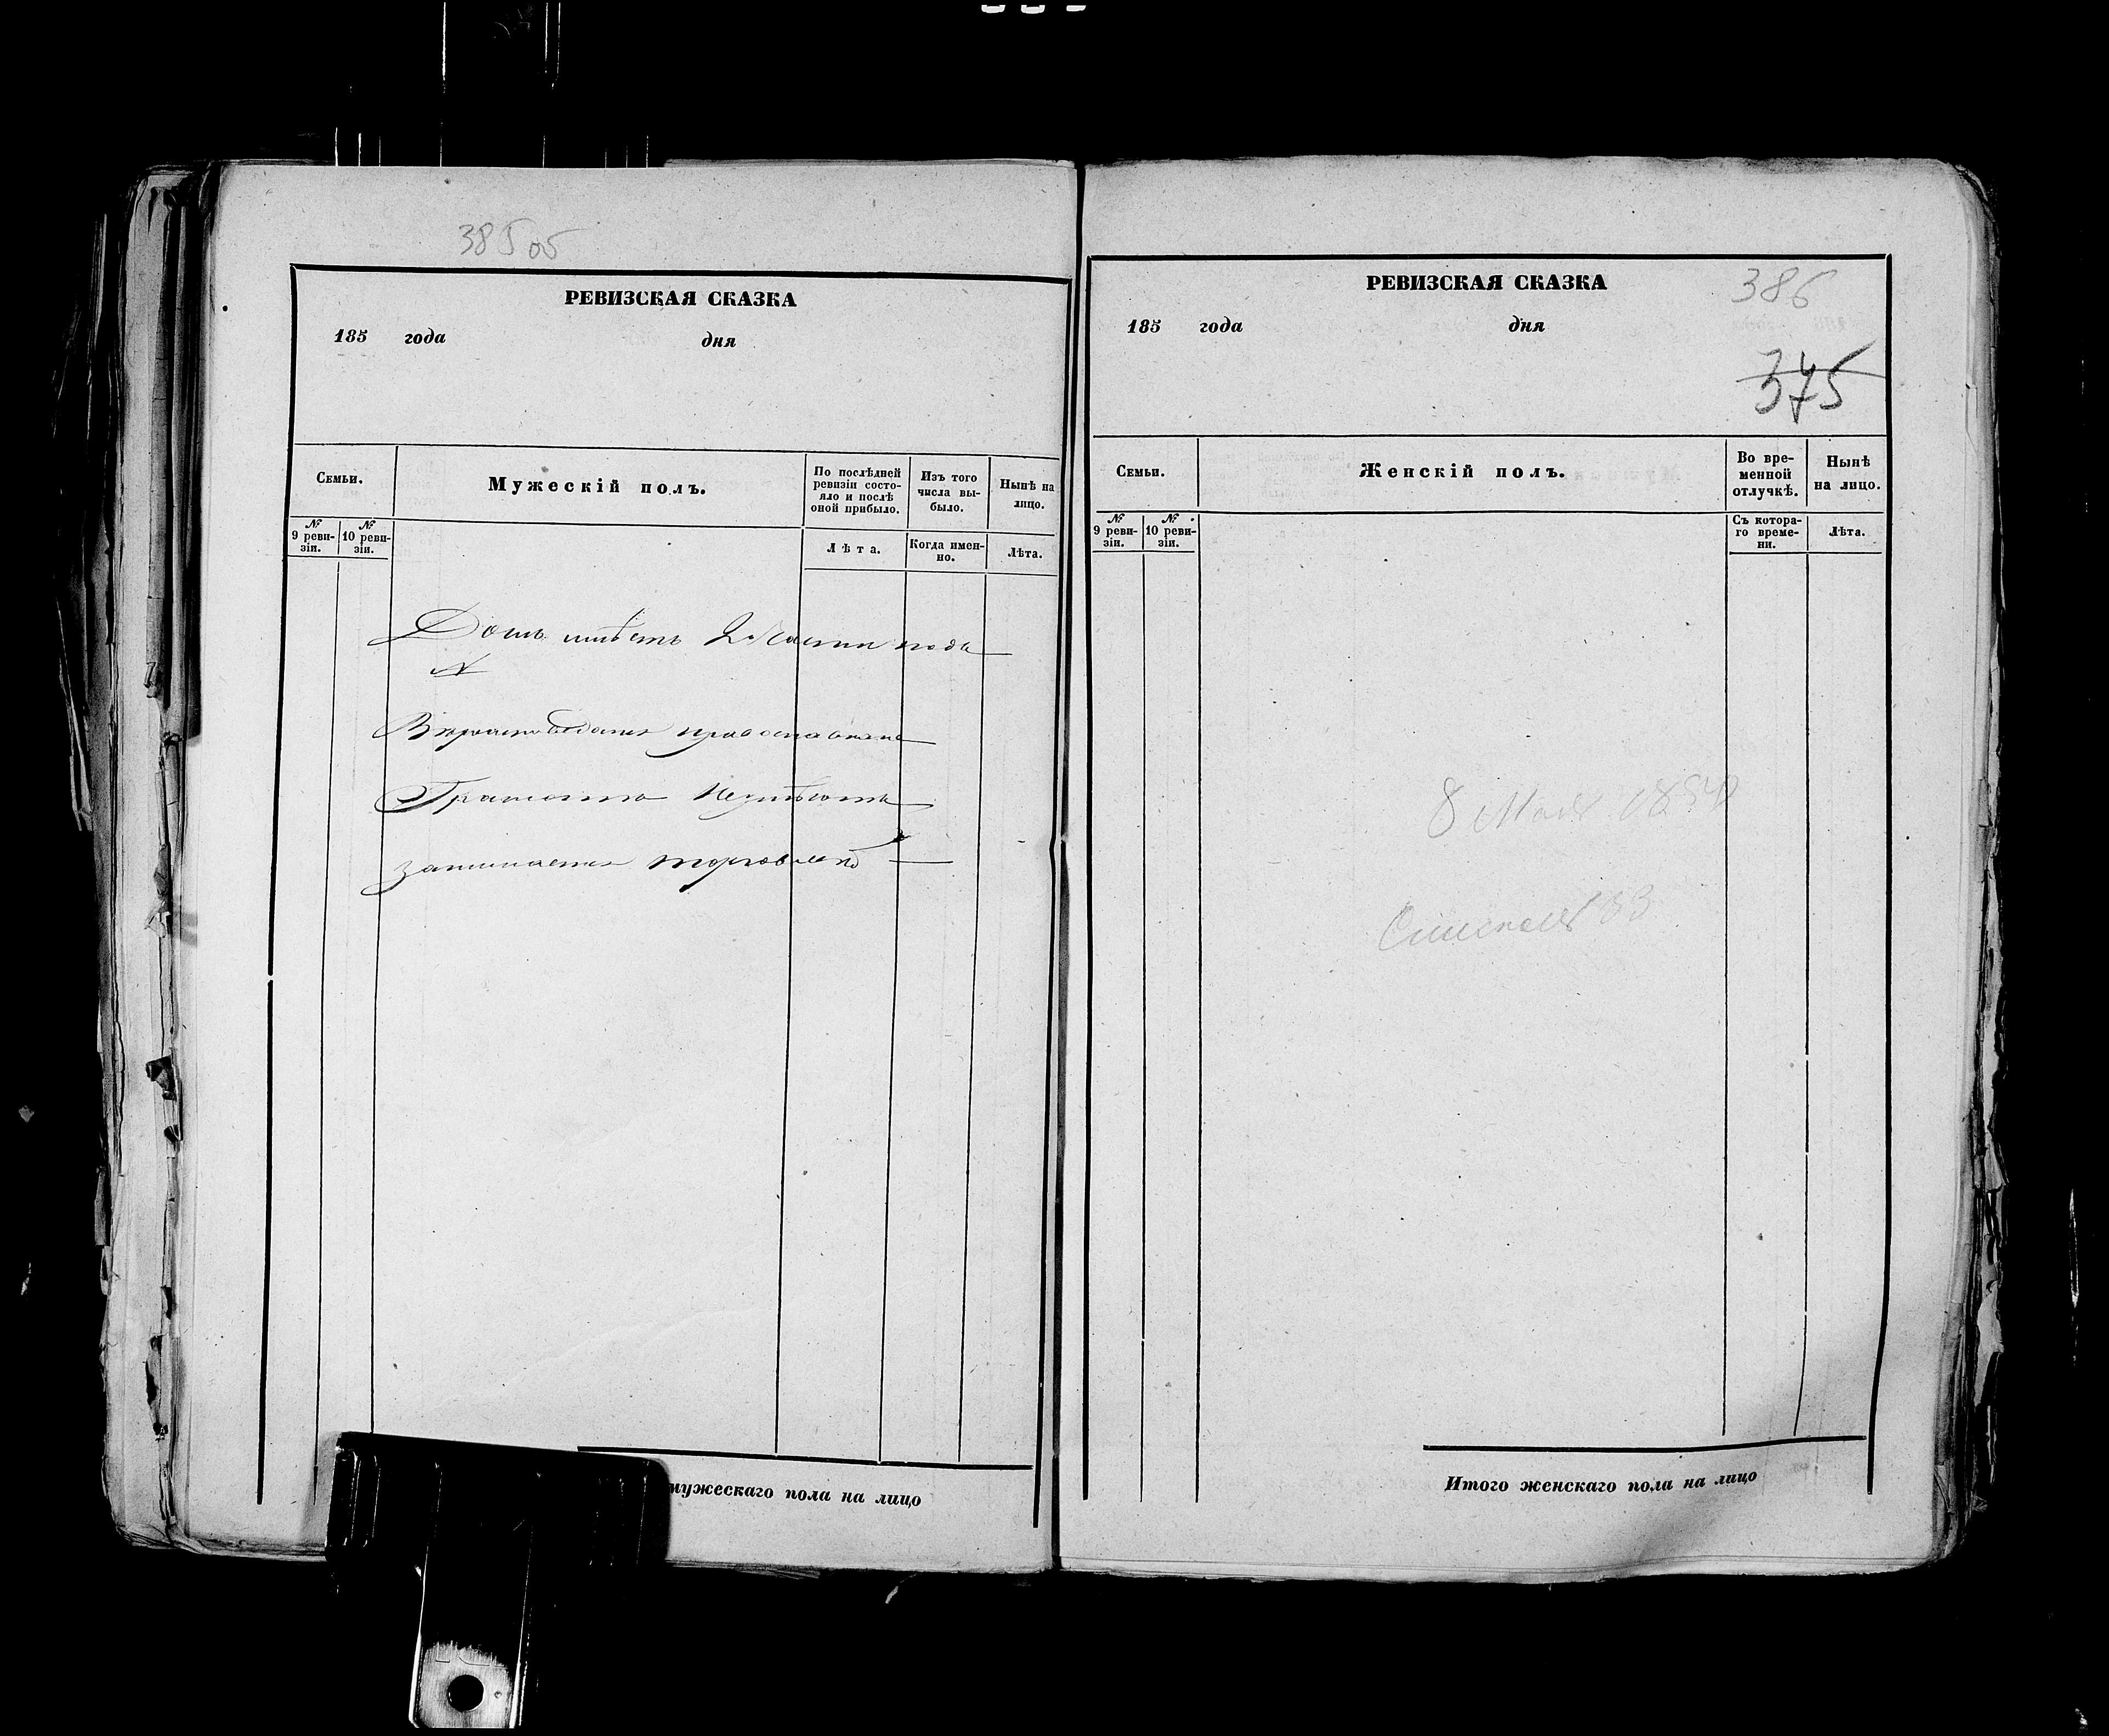 385об
РЕВИЗСКАЯ СКАЗКА
185 года дня
Семьи.
Мужескій полъ.
По послѣдней ревизіи состо-
яло и послѣ оной прибыло.
Изъ того числа вы-
было.
Нынѣ на лицо.
№ 9 реви-
зіи.
№ 10 реви-
зіи.
Лѣта.
Когда имен-
но.
Лѣта.
Домъ имѣетъ 2 части подъ
№
Вѣроисповѣданія православнаго
Грамотѣ Неумѣетъ
занимается торговлею
мужескаго пола на лицо
РЕВИЗСКАЯ СКАЗКА
386
185 года дня
375
Семьи.
Женскій полъ.
Во вре-
менной
отлучкѣ.
Нынѣ
на лицо.
№ 9 реви-
зіи.
№ 10 реви-
зіи.
Съ котора-
го време-
ни.
Лѣта.
8 Мая
Итого женскаго пола на лицо